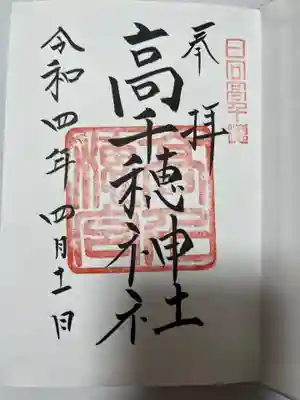 奉拝
日向高千穂
高千穂神社
令和四年四月十一日